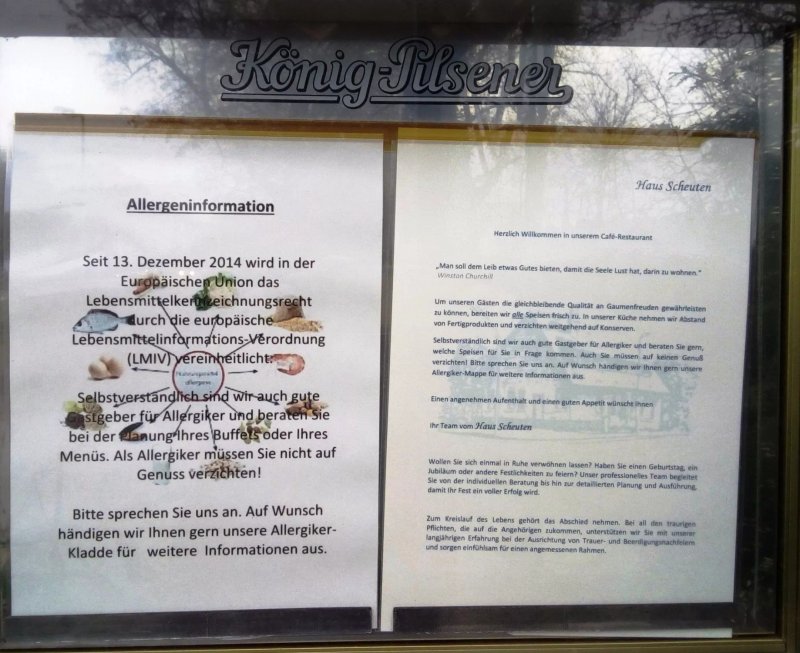 König-Pilsener
Allergeninformation
Seit 13. Dezember 2014 wird in der
Europäischen Union das
Lebensmittelkennzeichnungsrecht
durch die europäische
Lebensmittelinformations-Verordnung
(LMIV) vereinheitlicht.
Selbstverständlich sind wir auch gute
Gastgeber für Allergiker und beraten Sie
bei der Planung Ihres Buffets oder Ihres
Menüs. Als Allergiker müssen Sie nicht auf
Genuss verzichten!
Bitte sprechen Sie uns an. Auf Wunsch
händigen wir Ihnen gern unsere Allergiker-
Kladde für weitere Informationen aus.
Haus Scheuten
Herzlich Willkommen in unserem Café-Restaurant
„Man soll dem Leib etwas Gutes bieten, damit die Seele Lust hat, darin zu wohnen."
Winston Churchill
Um unseren Gästen die gleichbleibende Qualität an Gaumenfreuden gewährleisten
zu können, bereiten wir alle Speisen frisch zu. In unserer Küche nehmen wir Abstand
von Fertigprodukten und verzichten weitgehend auf Konserven.
Selbstverständlich sind wir auch gute Gastgeber für Allergiker und beraten Sie gern,
welche Speisen für Sie in Frage kommen. Auch Sie müssen auf keinen Genuß
verzichten! Bitte sprechen Sie uns an. Auf Wunsch händigen wir Ihnen gern unsere
Allergiker-Mappe für weitere Informationen aus.
Einen angenehmen Aufenthalt und einen guten Appetit wünscht Ihnen
Ihr Team vom Haus Scheuten
Wollen Sie sich einmal in Ruhe verwöhnen lassen? Haben Sie einen Geburtstag, ein
Jubiläum oder andere Festlichkeiten zu feiern? Unser professionelles Team begleitet
Sie von der individuellen Beratung bis hin zur detaillierten Planung und Ausführung,
damit Ihr Fest ein voller Erfolg wird.
Zum Kreislauf des Lebens gehört das Abschied nehmen. Bei all den traurigen
Pflichten, die auf die Angehörigen zukommen, unterstützen wir Sie mit unserer
langjährigen Erfahrung bei der Ausrichtung von Trauer- und Beerdigungsnachfeiern
und sorgen einfühlsam für einen angemessenen Rahmen.